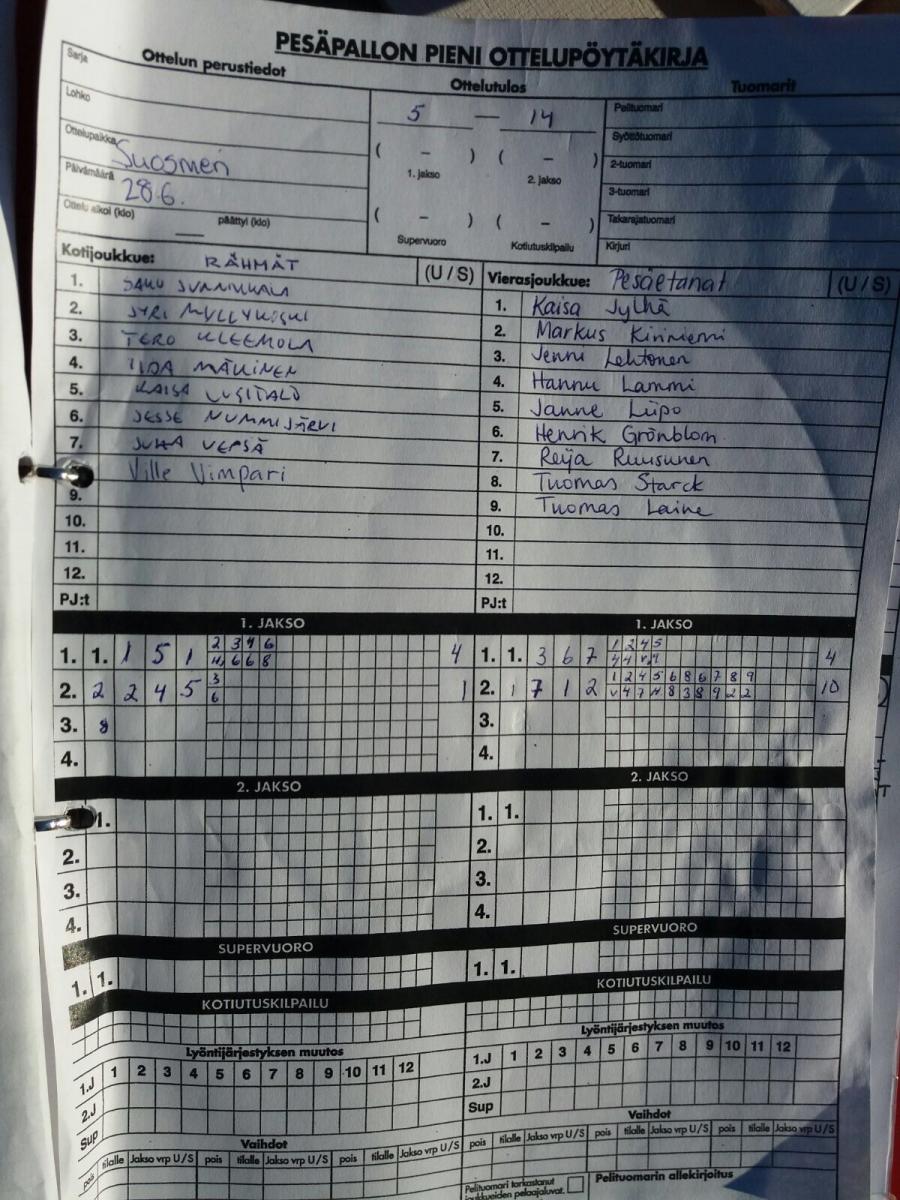 PESÄPALLON PIENI OTTELUPÖYTÄKIRJA
Ottelun perustiedot
Ottelutulos
Tuomarit
Sarja
Lohko
Ottelupaikka Suosmeri
Päivämäärä 28.6.
Ottelu alkoi (klo) päättyi (klo)
5 — 14
( – ) ( – )
1. jakso 2. jakso
( – ) ( – )
Supervuoro Kotiutuskilpailu
Pelituomari
Syöttötuomari
2-tuomari
3-tuomari
Takarajatuomari
Kirjuri
Kotijoukkue: RÄHMÄT (U / S)
1. SAKU SUNNIKKALA
2. JYRI MYLLYKOSKI
3. TERO KLEEMOLA
4. IIDA MÄKINEN
5. KAISA UUSITALO
6. JESSE NUMMIJÄRVI
7. JUHA VEPSÄ
Ville Vimpari
9.
10.
11.
12.
PJ:t
Vierasjoukkue: Pesäetanat (U / S)
1. Kaisa Jylhä
2. Markus Kinniemi
3. Jenni Lehtonen
4. Hannu Lammi
5. Janne Liipo
6. Henrik Grönblom
7. Reija Ruusunen
8. Tuomas Starck
9. Tuomas Laine
10.
11.
12.
PJ:t
1. JAKSO
2 3 4 6
1. 1. 1 5 1 6 6 8 4
3
2. 2 2 4 5 6 1
3. 8
4.
1. JAKSO
1 2 4 5
1. 1. 3 6 7 4 4 4
1 2 4 5 6 8 6 7 8 9
2. 1 7 1 2 V 4 7 8 3 8 9 2 2 10
3.
4.
2. JAKSO
1.
2.
3.
4.
2. JAKSO
1. 1.
2.
3.
4.
SUPERVUORO
1. 1.
SUPERVUORO
1. 1.
KOTIUTUSKILPAILU
KOTIUTUSKILPAILU
Lyöntijärjestyksen muutos
1.J 1 2 3 4 5 6 7 8 9 10 11 12
2.J
Sup
Lyöntijärjestyksen muutos
1.J 1 2 3 4 5 6 7 8 9 10 11 12
2.J
Sup
Vaihdot
pois tilalle Jakso vrp U/S pois tilalle Jakso vrp U/S pois tilalle Jakso vrp U/S
Vaihdot
pois tilalle Jakso vrp U/S pois tilalle Jakso vrp U/S pois tilalle Jakso vrp U/S
Pelituomari tarkastanut
joukkueiden pelaajaluvat.
Pelituomarin allekirjoitus